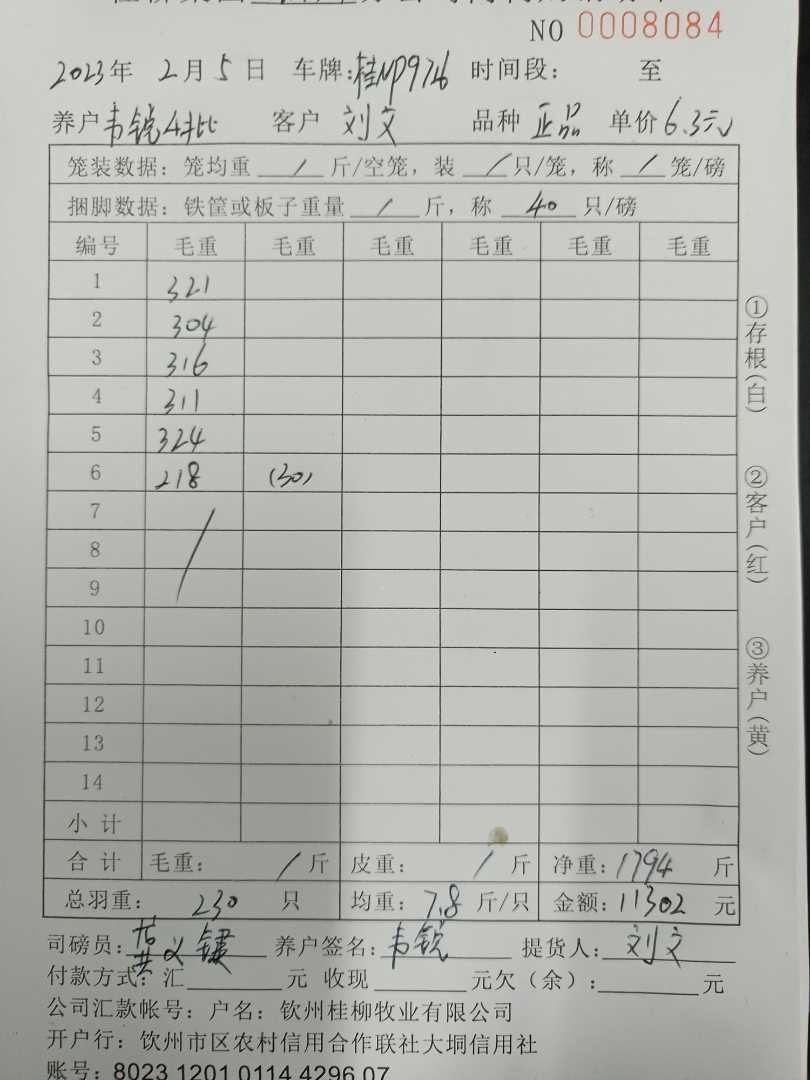 NO 0008084
2023年 2月5日 车牌:桂NP9726 时间段: 至
养户韦锐4批 客户 刘文 品种 正品 单价6.3元
笼装数据: 笼均重 / 斤/空笼, 装 / 只/笼, 称 / 笼/磅
捆脚数据: 铁筐或板子重量 / 斤, 称 40 只/磅
编号 毛重 毛重 毛重 毛重 毛重 毛重
1 321
2 304
3 316
4 311
5 324
6 218 (30)
7
8
9
10
11
12
13
14
小计
合计 毛重: / 斤 皮重: / 斤 净重:1794 斤
总羽重: 230 只 均重: 7.8 斤/只 金额:11302 元
司磅员: 黄义键 养户签名:韦锐 提货人: 刘文
付款方式: 汇 元 收现 元欠(余): 元
公司汇款帐号: 户名: 钦州桂柳牧业有限公司
开户行: 钦州市区农村信用合作联社大垌信用社
账号: 8023 1201 0114 4296 07
①存根(白)
②客户(红)
③养户(黄)